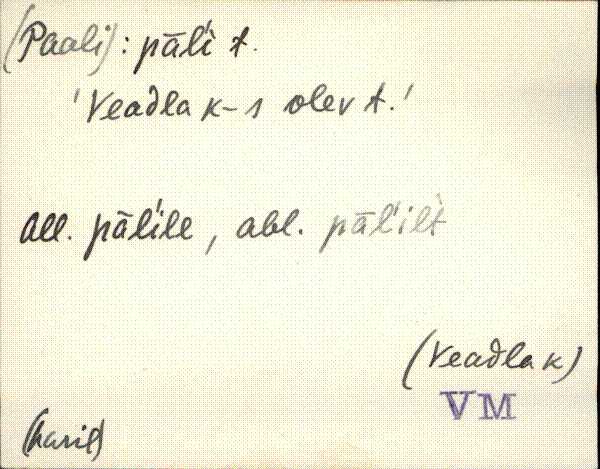 (Paali): pāľi t.
'Veadla k-s olev t.'
all. pāľile, abl. pāľilt
(Veadla k)
VM
(haril)